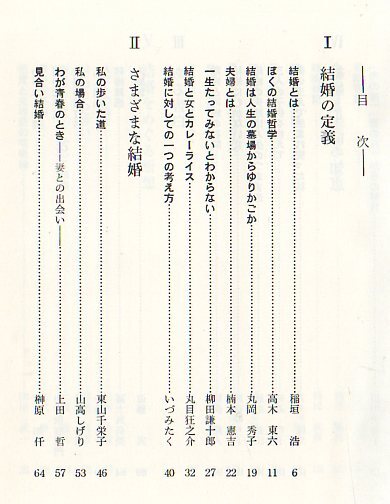 目次
Ⅰ 結婚の定義
結婚とは 稲垣浩 6
ぼくの結婚哲学 高木東六 11
結婚は人生の墓場からゆりかごか 丸岡秀子 19
夫婦とは 楠本憲吉 22
一生たってみないとわからない 柳田謙十郎 27
結婚と女とカレーライス 丸目狂之介 32
結婚に対しての一つの考え方 いづみたく 40
Ⅱ さまざまな結婚
私の歩いた道 東山千栄子 46
私の場合 山高しげり 53
わが青春のとき——妻との出会い—— 上田哲 57
見合い結婚 榊原仟 64